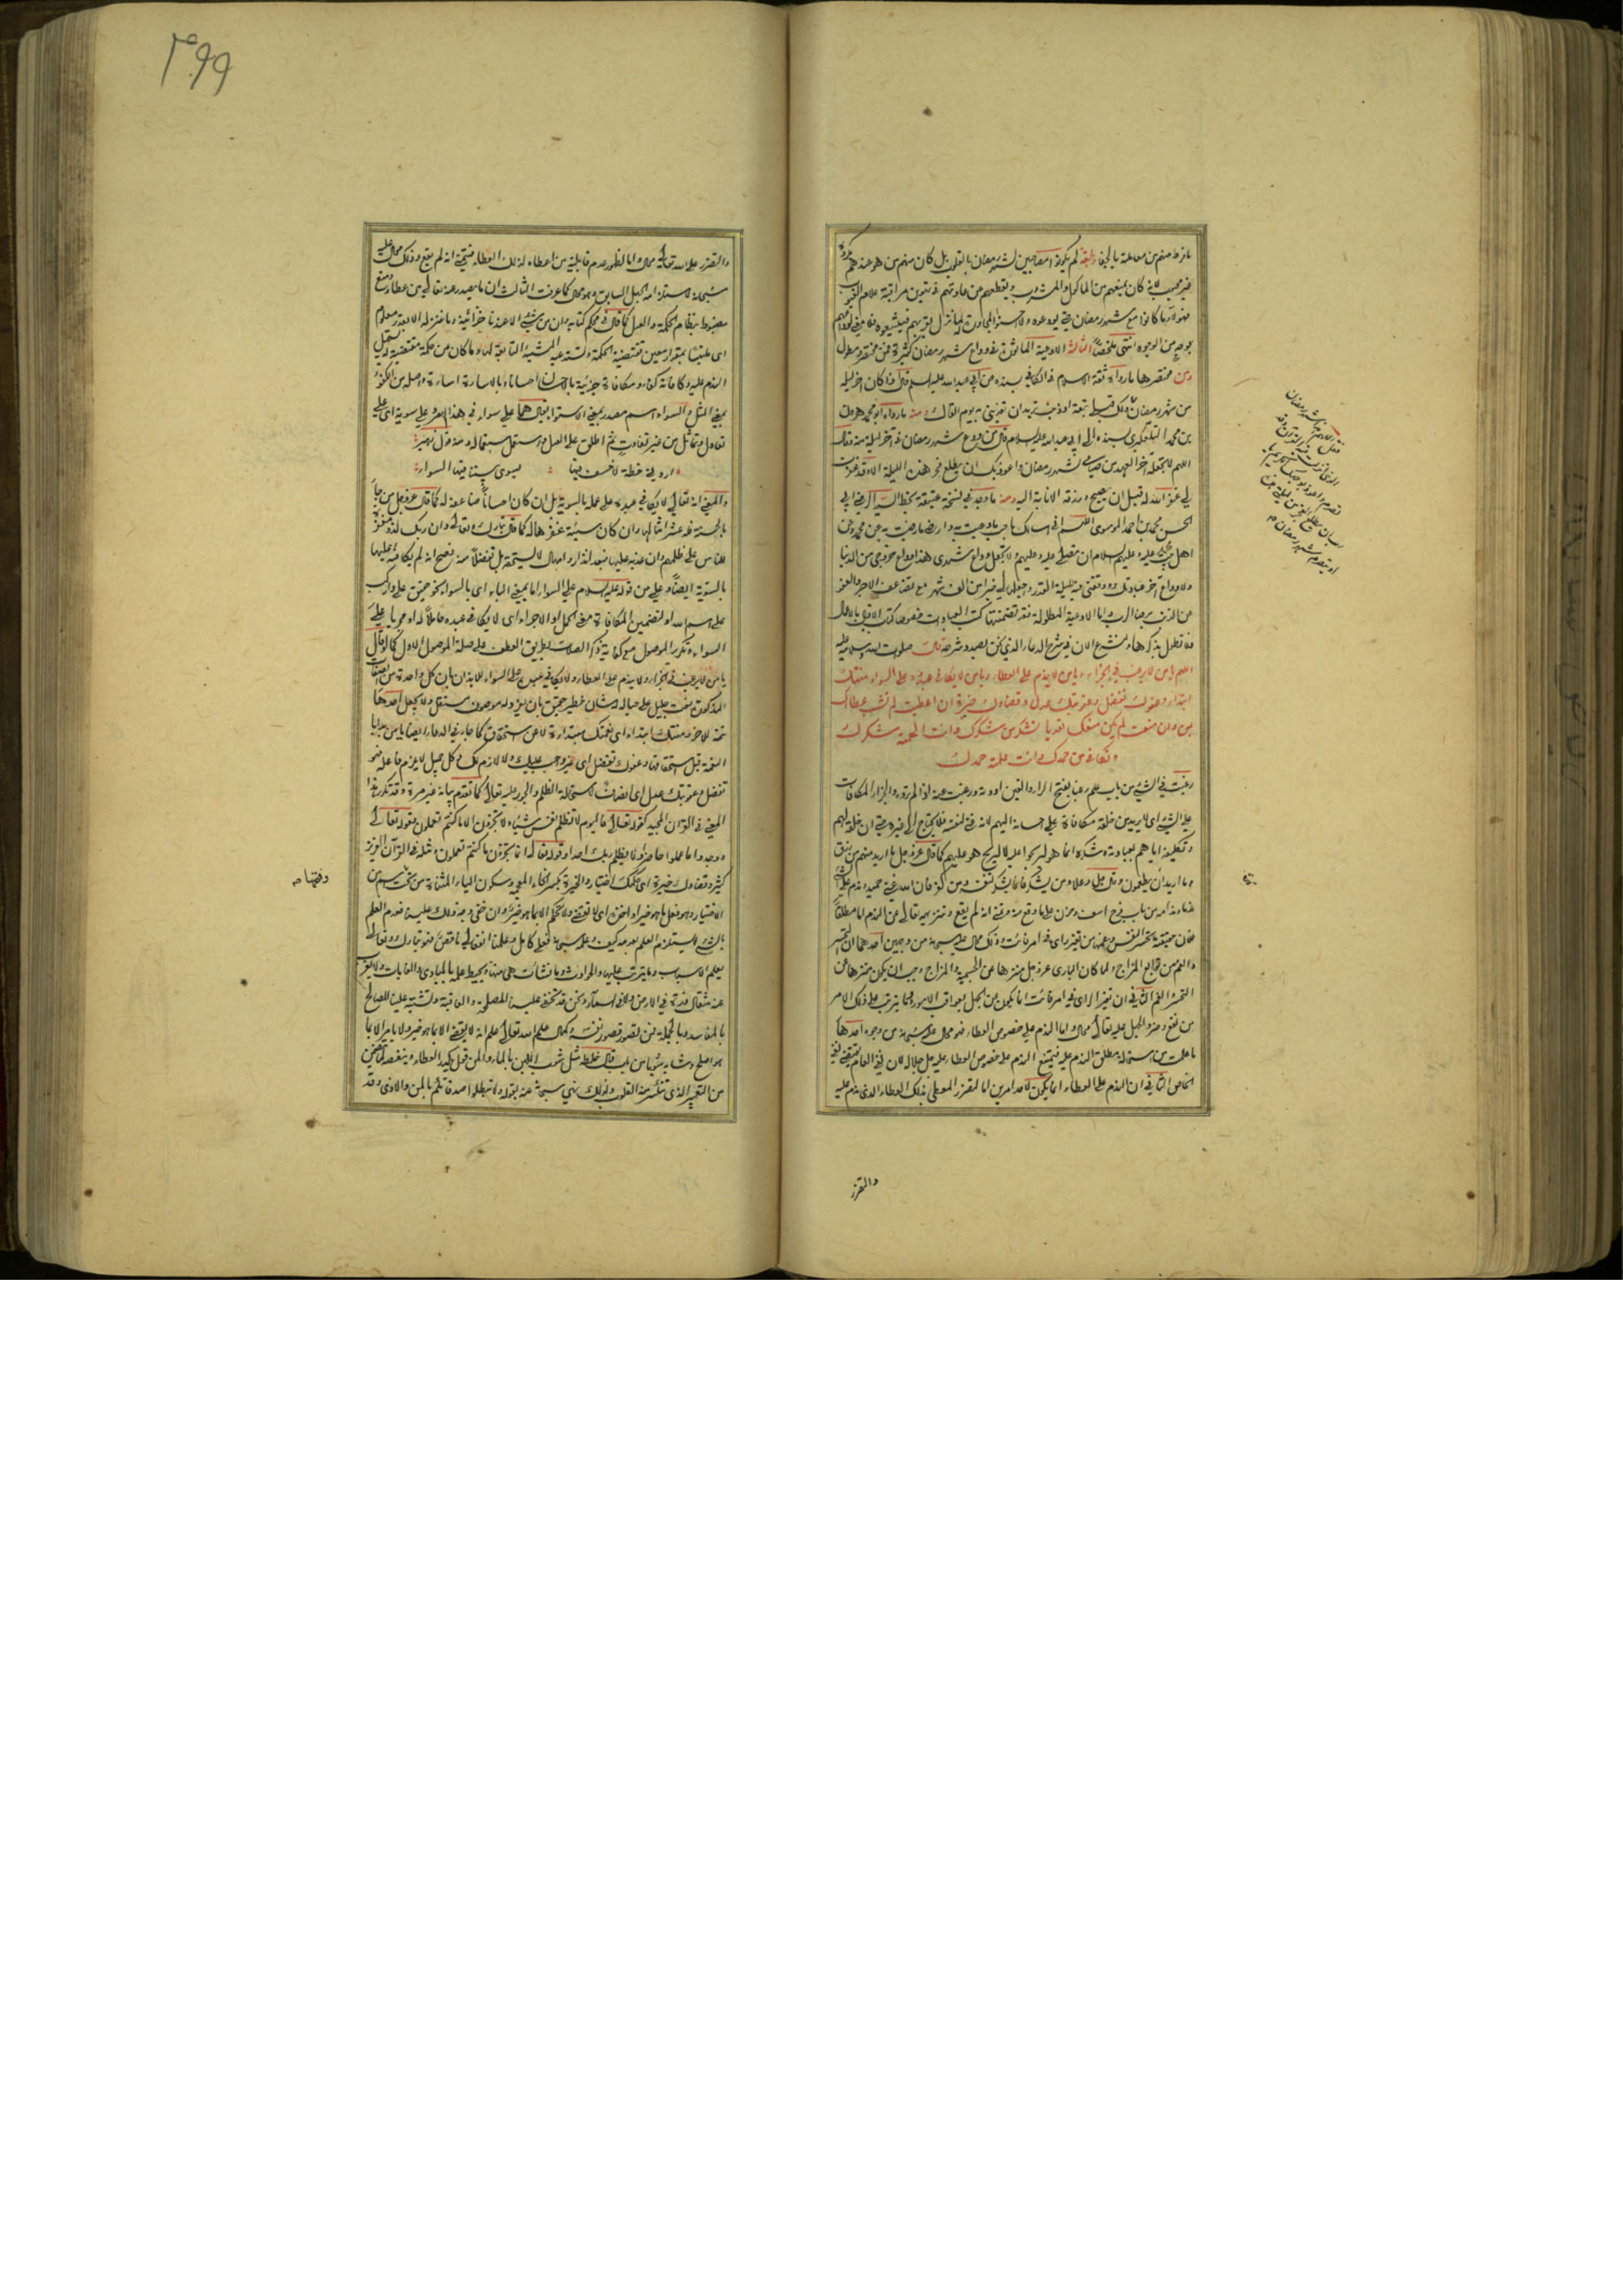 ما فرط منهم من معاملة بالجفاء وطبقة لم يكونوا مصاحبين لشهر رمضان بالقلوب بل كان منهم من هو عندهم مكروه
غير محبوب لانه كان يمنعهم من المأكول والمشروب ويقطعهم من عادتهم مراقبة علام الغيوب
فهؤلاء ما كانوا مع شهر رمضان حتى يودعوه ولا احسنوا المجاورة له لما نزل بهم فيشيعوه فلا معنى لوداعهم
بوجه من الوجوه انتهى ملخصا الثالثة الادعية المأثورة في وداع شهر رمضان كثيرة فمن مختصر ومطول
ومن مختصرها ما رواه ثقة الاسلام في الكافي بسنده عن ابي عبد الله عليه السلام قال اذا كان اخر ليلة
من شهر رمضان
بن محمد التلعكبري بسنده الى ابي عبد الله عليه السلام قال من ودع شهر رمضان في اخر ليلة منه وقال
اللهم لا تجعله اخر العهد من صيامي لشهر رمضان واعوذ بك ان يطلع فجر هذه الليلة الا وقد غفرت
لي غفر الله له قبل ان يصبح ورزقه الانابة اليه ومنه ما وجد في نسخة عتيقة بخط السيد الرضي ابي
الحسن محمد بن احمد الموسوي اللهم اني اسألك باحب ما دعيت به وارضى ما رضيت به عن محمد وعن
اهل بيته عليه وعليهم السلام ان تصلي عليه وعليهم ولا تجعل وداع شهري هذا وداع خروجي من الدنيا
ولا وداع اخر عبادتك ووفقني فيه لليلة القدر واجعلها لي خيرا من الف شهر مع تضاعف الاجر والعفو
عن الذنب برضا الرب واما الادعية المطولة فقد تضمنتها كتب العبادات خصوصا كتاب الاقبال
فلا نطل بذكرها ولنشرع الان في شرح الدعاء الذي نحن بصدد شرحه قال صلوات الله وسلامه عليه
اللهم يا من لا يرغب في الجزاء ويا من لا يندم على العطاء ويا من لا يكافئ عبده على السواء منتك
ابتداء وعفوك تفضل وعقوبتك عدل وقضاؤك خيرة ان اعطيت لم تشب عطاءك
بمن وان منعت لم يكن منعك تعديا تشكر من شكرك وانت الهمته شكرك
وتكافئ من حمدك وانت علمته حمدك
رغبت في الشيء من باب علم رغبا بفتح الراء والغين اردته ورغبت عنه اذا لم ترده والجزاء المكافاة
على الشيء اي لا يريد من خلقه مكافاة على احسانه اليهم لانه غني لنفسه فلا يحتاج الى غيره حتى ان خلقه لهم
وتكليفه اياهم بعبادته وشكره انما هو ليربحوا عليه لا ليربح هو عليهم كما قال عز وجل ما اريد منهم من رزق
وما اريد ان يطعمون وقال جل وعلا ومن يشكر فانما يشكر لنفسه ومن كفر فان الله غني حميد وندم على
ندما وندامة من باب فرح اسف وحزن على ما وقع منه وتمنى انه لم يقع وتنزيهه تعالى عن الندم اما مطلقا
فلان حقيقته تحسر النفس وغمها من تغير راي في امر فائت وذلك محال عليه سبحانه من وجهين احدهما ان التحسر
والغم من توابع المزاج ولما كان الباري عز وجل منزها عن الجسمية والمزاج وجب ان يكون منزها عن
التحسر والغم الثاني ان تغير الراي في امر فائت انما يكون عن الجهل بعواقب الامور وما يترتب على ذلك الامر
من نفع وضر والجهل عليه تعالى محال واما الندم على خصوص العطاء فهو محال عليه سبحانه من وجوه احدها
ما علمت من استحالة مطلق الندم عليه فيمتنع الندم على خصوص العطاء عليه جل جلاله لان نفي العام يقتضي نفي
الخاص الثاني ان الندم على العطاء انما يكون لاحد امرين اما لتضرر المعطي بذلك العطاء الذي ندم عليه
والتضرر
والتضرر على الله تعالى محال واما لظهور عدم قابلية من اعطاه لذلك العطاء فيتمنى انه لم يقع وذلك محال عليه
سبحانه لاستلزامه الجهل السابق وهو محال كما عرفت الثالث ان ما يصدر عنه تعالى من عطاء ومنع
مضبوط بنظام الحكمة والعدل كما قال في محكم كتابه وان من شيء الا عندنا خزائنه وما ننزله الا بقدر معلوم
اي ملتبسا بمقدار معين تقتضيه الحكمة وتستدعيه المشية التابعة لها وما كان عن حكمة مقتضية له يستحيل
الندم عليه وكافاه مكافاة جزيته بالاحسان احسانا وبالاساءة اساءة واصله من الكفؤ
بمعنى المثل والسواء اسم مصدر بمعنى الاستواء يقال هما على سواء في هذا الامر وعلى سوية اي على
تعادل وتماثل من غير تفاوت ثم اطلق على العدل واستعمل استعماله ومنه قول زهير
ارونا خطة لا خسف فيها يسوي بيننا فيها السواء
والمعنى انه تعالى لا يكافي عبده على عمله بالسوية بل ان كان احسانا ضاعفه له كما قال عز وجل من جاء
بالحسنة فله عشر امثالها وان كان سيئة غفرها له كما قال تبارك وتعالى وان ربك لذو مغفرة
للناس على ظلمهم وان عذبه عليها فبعد انذار وامهال لا يستحقه بل تفضلا منه فصح انه لم يكافه عليها
بالسوية ايضا وعلى من قوله عليه السلام على السواء اما بمعنى الباء اي بالسواء نحو حقيق على واركب
على اسم الله او لتضمين المكافاة معنى الحمل او الاجراء اي لا يكافي عبده حاملا له او مجريا على
السواء وتكرير الموصول مع كفاية ذكر الصلات بطريق العطف على صلة الموصول الاول كما لو قال
يا من لا يرغب في الجزاء ولا يندم على العطاء ولا يكافي عبده على السواء للايذان بان كل واحدة من الصفات
المذكورة نعت جليل على حياله وشان خطير حقيق بان يفرد له موصوف مستقل ولا يجعل احدها
تتمة للاخر ومنتك ابتداء اي نعمتك مبتدأة لا عن استحقاق كما جاء في الدعاء ايضا يا مبتدئا
النعمة قبل استحقاقها وعفوك تفضل اي غير واجب عليك ولا لازم لك وكل جميل لا يلزم فاعله فهو
تفضل وعقوبتك عدل اي انصاف لاستحالة الظلم والجور عليه تعالى كما تقدم بيانه غير مرة وقد تكرر هذا
المعنى في القران المجيد كقوله تعالى فاليوم لا تظلم نفس شيئا ولا تجزون الا ما كنتم تعملون وقوله تعالى
ووجدوا ما عملوا حاضرا ولا يظلم ربك احدا وقوله تعالى انما تجزون ما كنتم تعملون ومثله في القرآن العزيز
كثير وقضاؤك خيرة اي حكمك اختيار والخيرة بكسر الخاء المعجمة وسكون الياء المثناة من تحت اسم من
الاختيار وهو فعل ما هو خير او اخذه اي لا تقضي ولا تحكم الا بما هو خير وان خفي وجه ذلك علينا فعدم العلم
بالشيء لا يستلزم العلم بعدمه كيف وعلمه سبحانه فعلي كامل وعلمنا انفعالي ناقص فهو تبارك وتعالى
يعلم الاسباب وما يترتب عليها والحوادث وما نشأت هي منها ويحيط علمه بالمبادي والغايات ولا يعزب
عنه مثقال ذرة في الارض ولا في السماء ونحن قد تخفى علينا المصلحة والعاقبة وتشتبه علينا المصالح
بالمفاسد وبالجملة فمن تصور قصور نفسه وكمال علم الله تعالى علم انه لا يقضي الا بما هو خير ولا يامر الا بما
هو اصلح وشابه شوبا من باب قال خلطه مثل شوب اللبن بالماء والمن قول يكدر العطاء وينغصه لما يتضمن
من التعيير الذي تنكسر منه القلوب ولذلك نهى سبحانه عنه بقوله ولا تبطلوا صدقاتكم بالمن والاذى وقد
وفتحها
٣٩٩